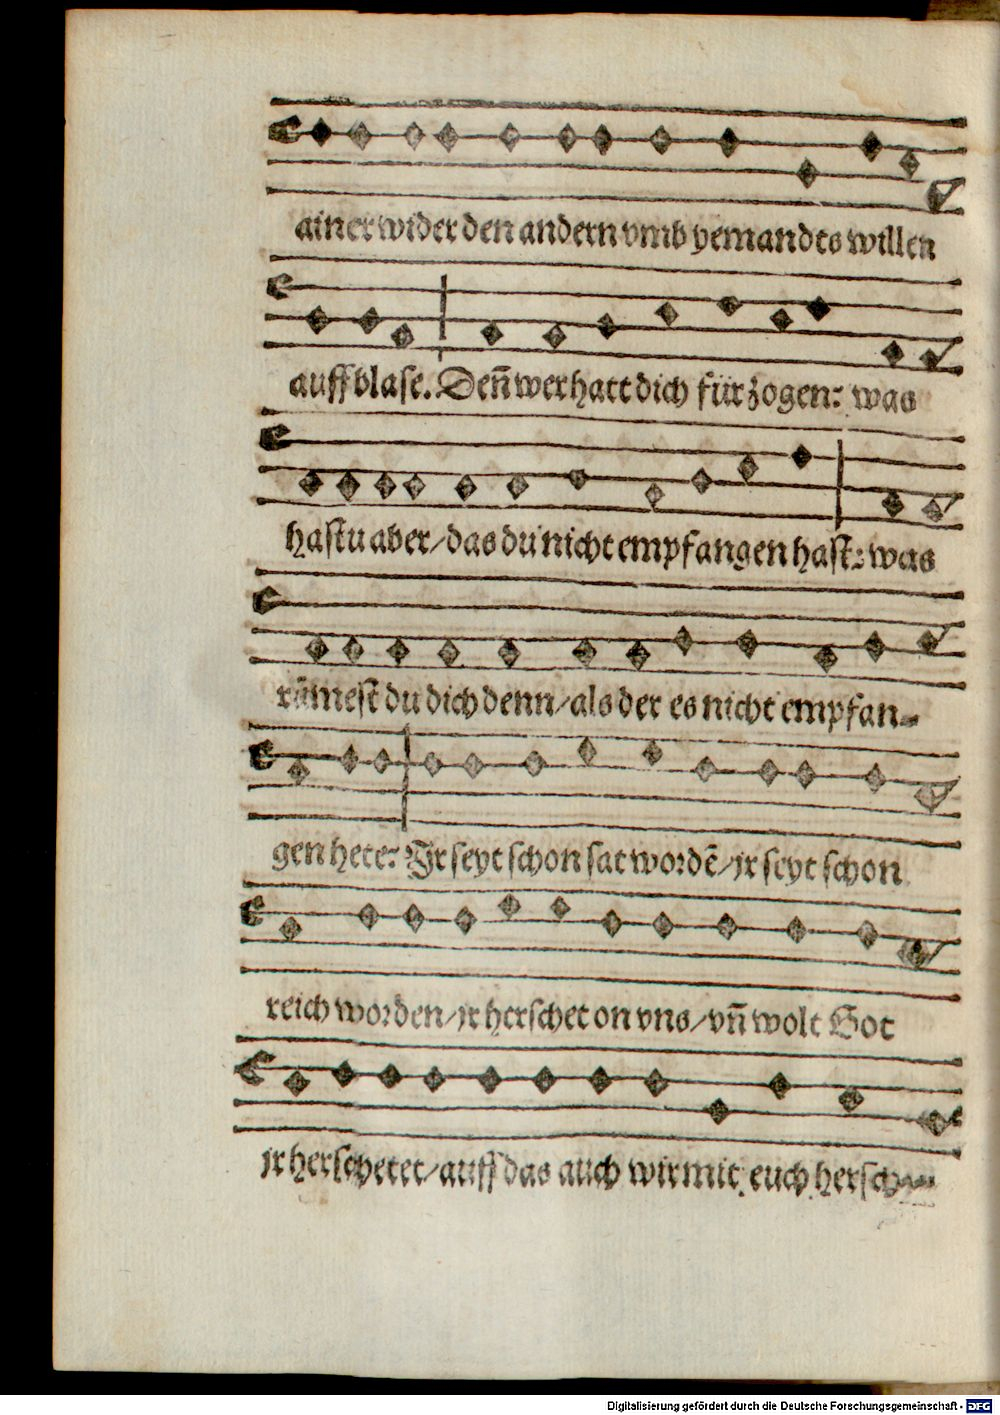 ainer wider den andern vmb yemandts willen
auff blase. Deñ wer hatt dich fürzogen: was
hastu aber/ das du nicht empfangen hast: was
rümest du dich denn/ als der es nicht empfan⸗
gen hete: Jr seyt schon sat wordē/ jr seyt schon
reich worden/ jr herschet on vns/ vñ wolt Got
jr herschetet/ auff das auch wir mit euch
Digitalisierung gefördert durch die Deutsche Forschungsgemeinschaft - DFG